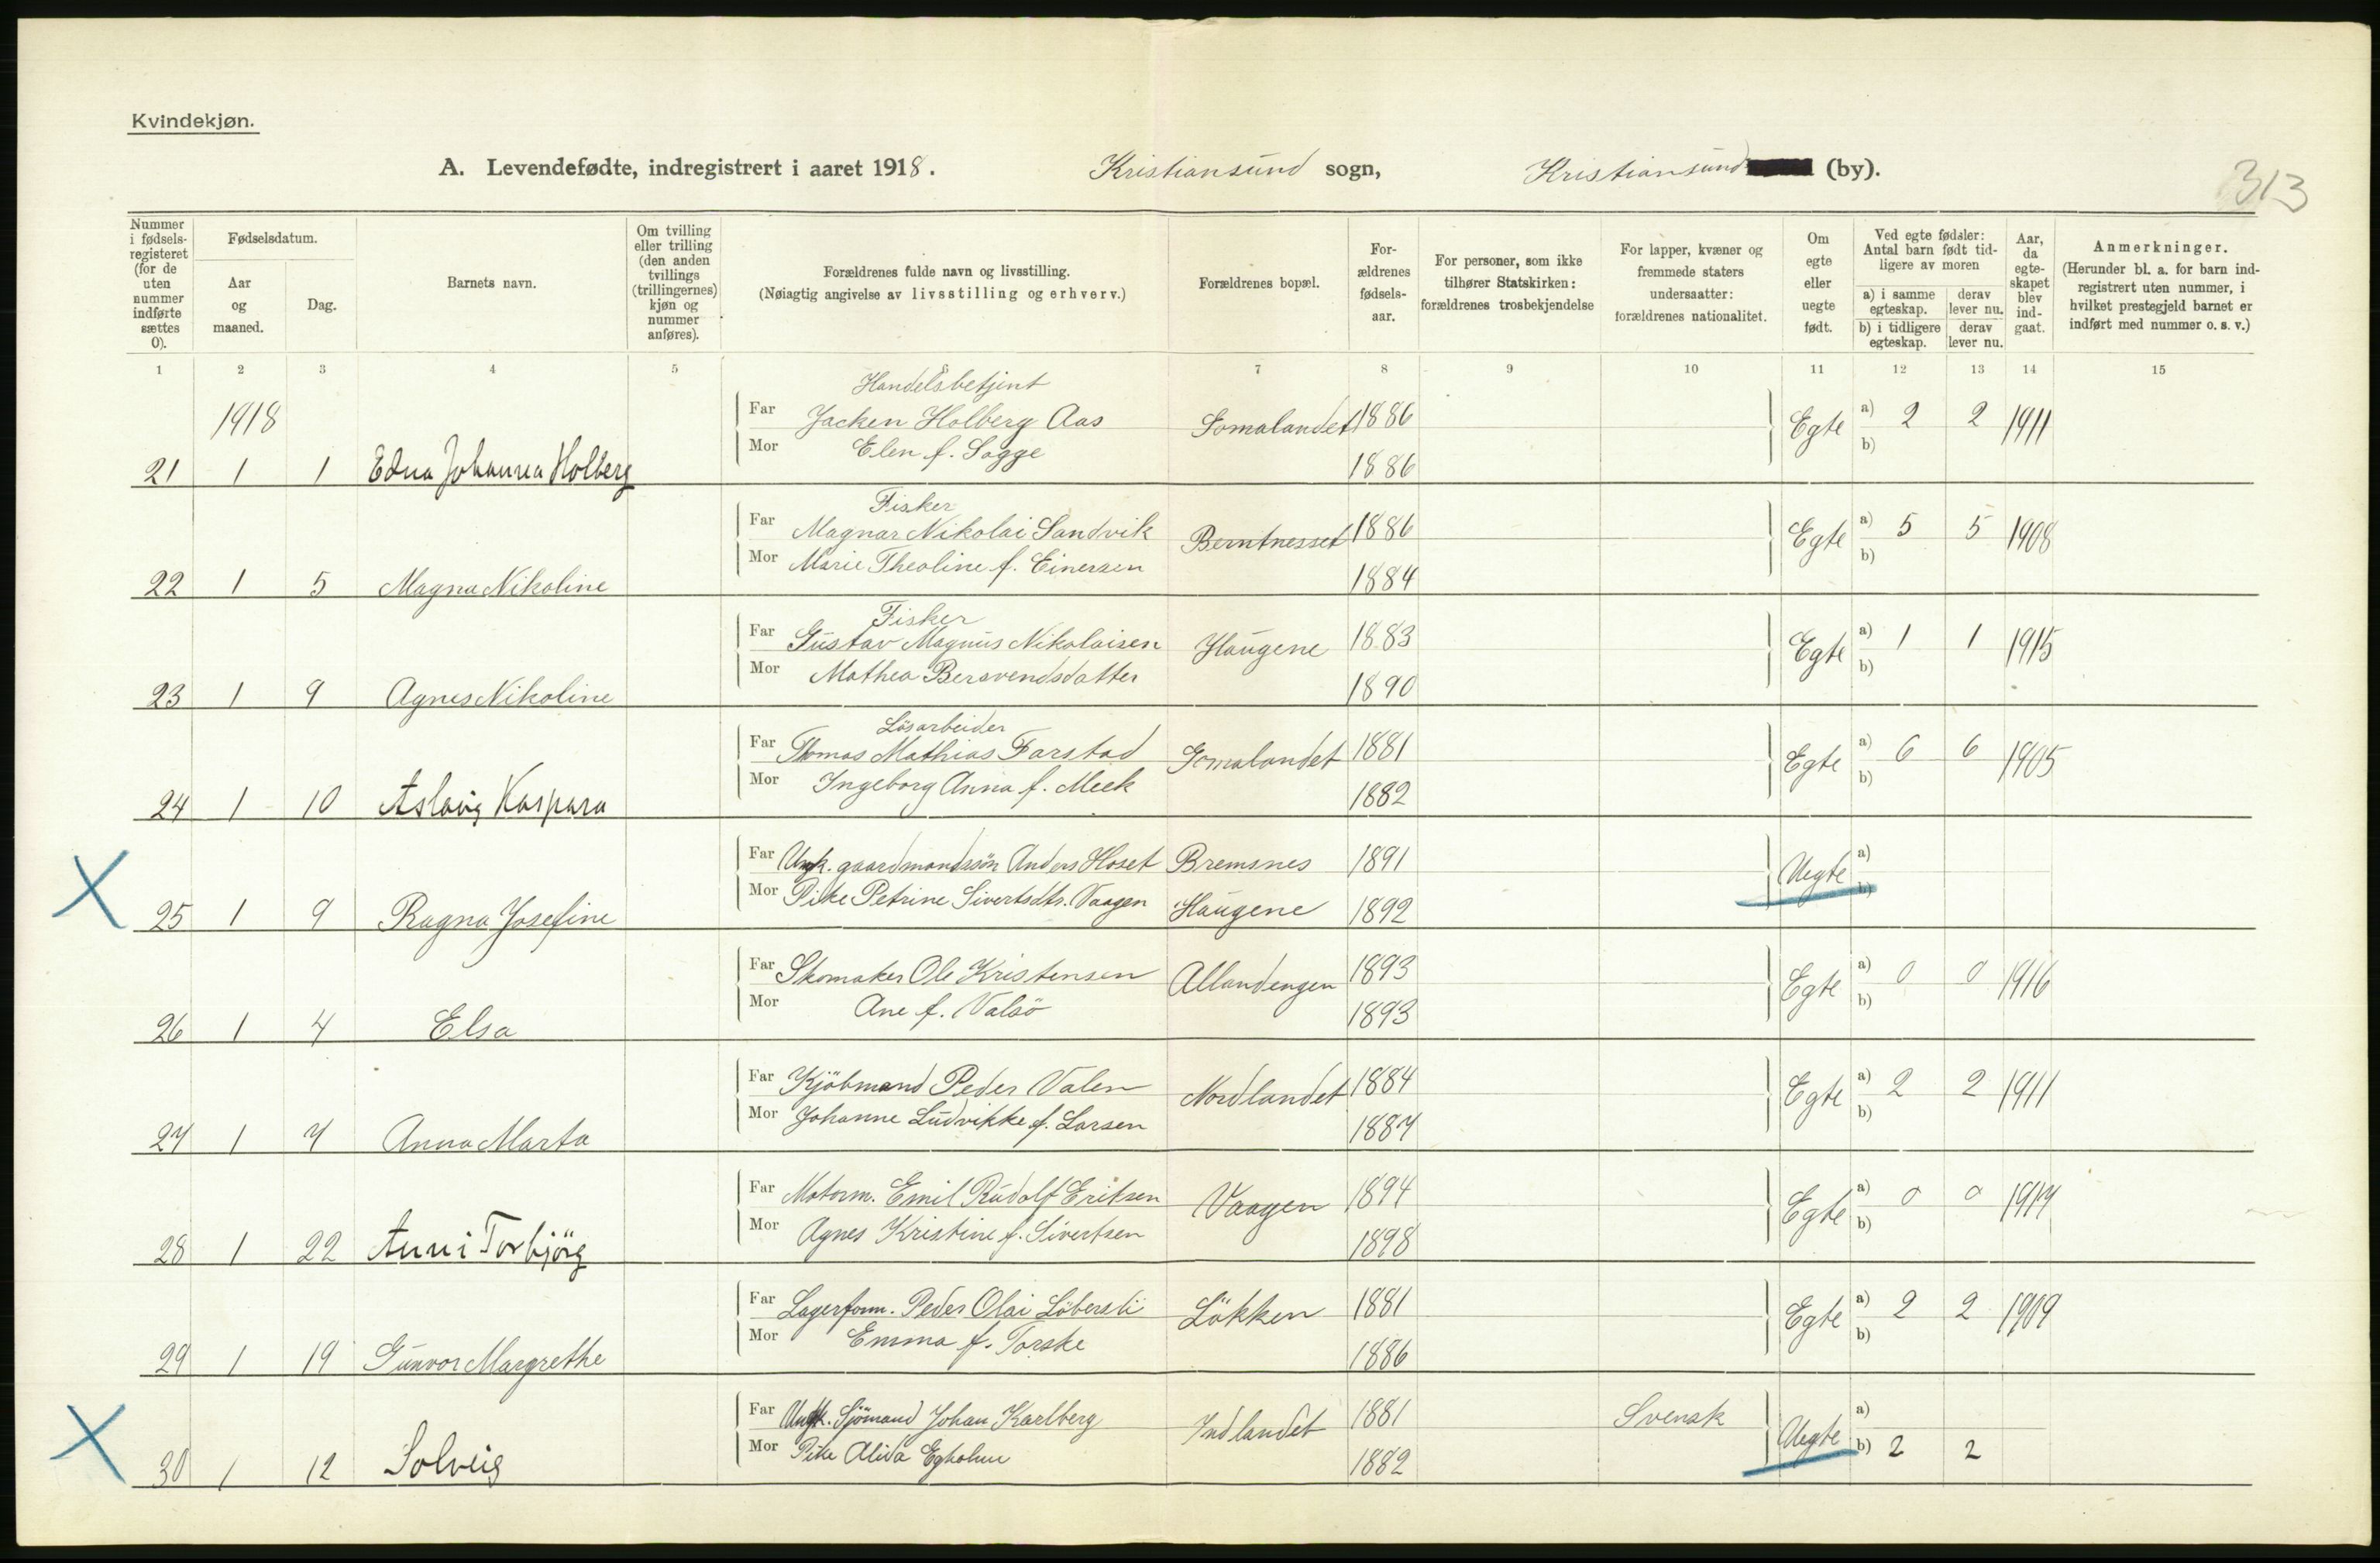 Kvindekjøn.
A. Levendefødte, indregistrert i aaret 1918. Kristiansund sogn, Kristiansund (by).
313
Nummer i fødselsregisteret (for de uten nummer indførte sættes 0).
Fødselsdatum.
Aar og maaned.
Dag.
Barnets navn.
Om tvilling eller trilling (den anden tvillings (trillingernes) kjøn og nummer anføres).
Forældrenes fulde navn og livsstilling.
(Nøiagtig angivelse av livsstilling og erhverv.)
Forældrenes bopæl.
Forældrenes fødselsaar.
For personer, som ikke tilhører Statskirken: forældrenes trosbekjendelse
For lapper, kvæner og fremmede staters undersaatter: forældrenes nationalitet.
Om egte eller uegte født.
Ved egte fødsler: Antal barn født tidligere av moren
a) i samme egteskap. derav lever nu.
b) i tidligere egteskap. derav lever nu.
Aar, da egteskapet blev indgaat.
Anmerkninger.
(Herunder bl. a. for barn indregistrert uten nummer, i hvilket prestegjeld barnet er indført med nummer o. s. v.)
1 2 3 4 5 7 8 9 10 11 12 13 14 15
1918
Handelsbetjent
Far Jacken Holberg Aas Gomalandet 1886 Egte a) 2 2 1911
Mor Elen f. Sagge 1886 b)
21 1 1 Edna Johanna Holberg
Fisker
Far Magnar Nikolai Sandvik Berntnesset 1886 Egte a) 5 5 1908
Mor Marie Theoline f. Einersen 1884 b)
22 1 5 Magna Nikoline
Fisker
Far Gustav Magnus Nikolaisen Haugene 1883 Egte a) 1 1 1915
Mor Mathea Bersvendsdatter 1890 b)
23 1 9 Agnes Nikoline
Løsarbeider
Far Thomas Mathias Farstad Gomalandet 1881 Egte a) 6 6 1905
Mor Ingeborg Anna f. Meek 1882 b)
24 1 10 Aslaug Kaspara
Far Ungk. gaardmandssön Anders Hoset Bremsnes 1891 Uegte a)
Mor Pike Petrine Sivertsdtr. Vaagen Haugene 1892 b)
X 25 1 9 Ragna Josefine
Far Skomaker Ole Kristensen Allandengen 1893 Egte a) 0 0 1916
Mor Ane f. Valsö 1893 b)
26 1 4 Elsa
Far Kjöbmand Peder Valen Nordlandet 1884 Egte a) 2 2 1911
Mor Johanne Ludvikke f. Larsen 1887 b)
27 1 7 Anna Marta
Far Motorm. Emil Rudolf Eriksen Vaagen 1894 Egte a) 0 0 1917
Mor Agnes Kristine f. Sivertsen 1898 b)
28 1 22 Anni Torbjörg
Far Lagerform. Peder Olai Löbersli Lökken 1881 Egte a) 2 2 1909
Mor Emma f. Torske 1886 b)
29 1 19 Gunvor Margrethe
Far Ungk. Sjömand Johan Karlberg Indlandet 1881 Svensk Uegte a)
Mor Pike Alida Egholm 1882 b) 2 2
X 30 1 12 Solveig